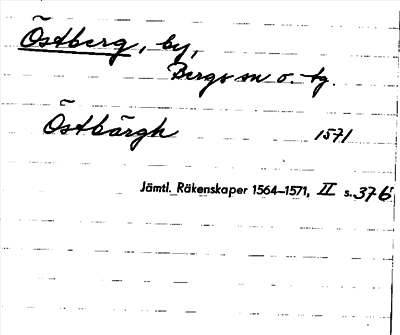 Östberg, by,
Bergs sn o. tg.
Östbärgh 1571
Jämtl. Räkenskaper 1564–1571, II s. 376.